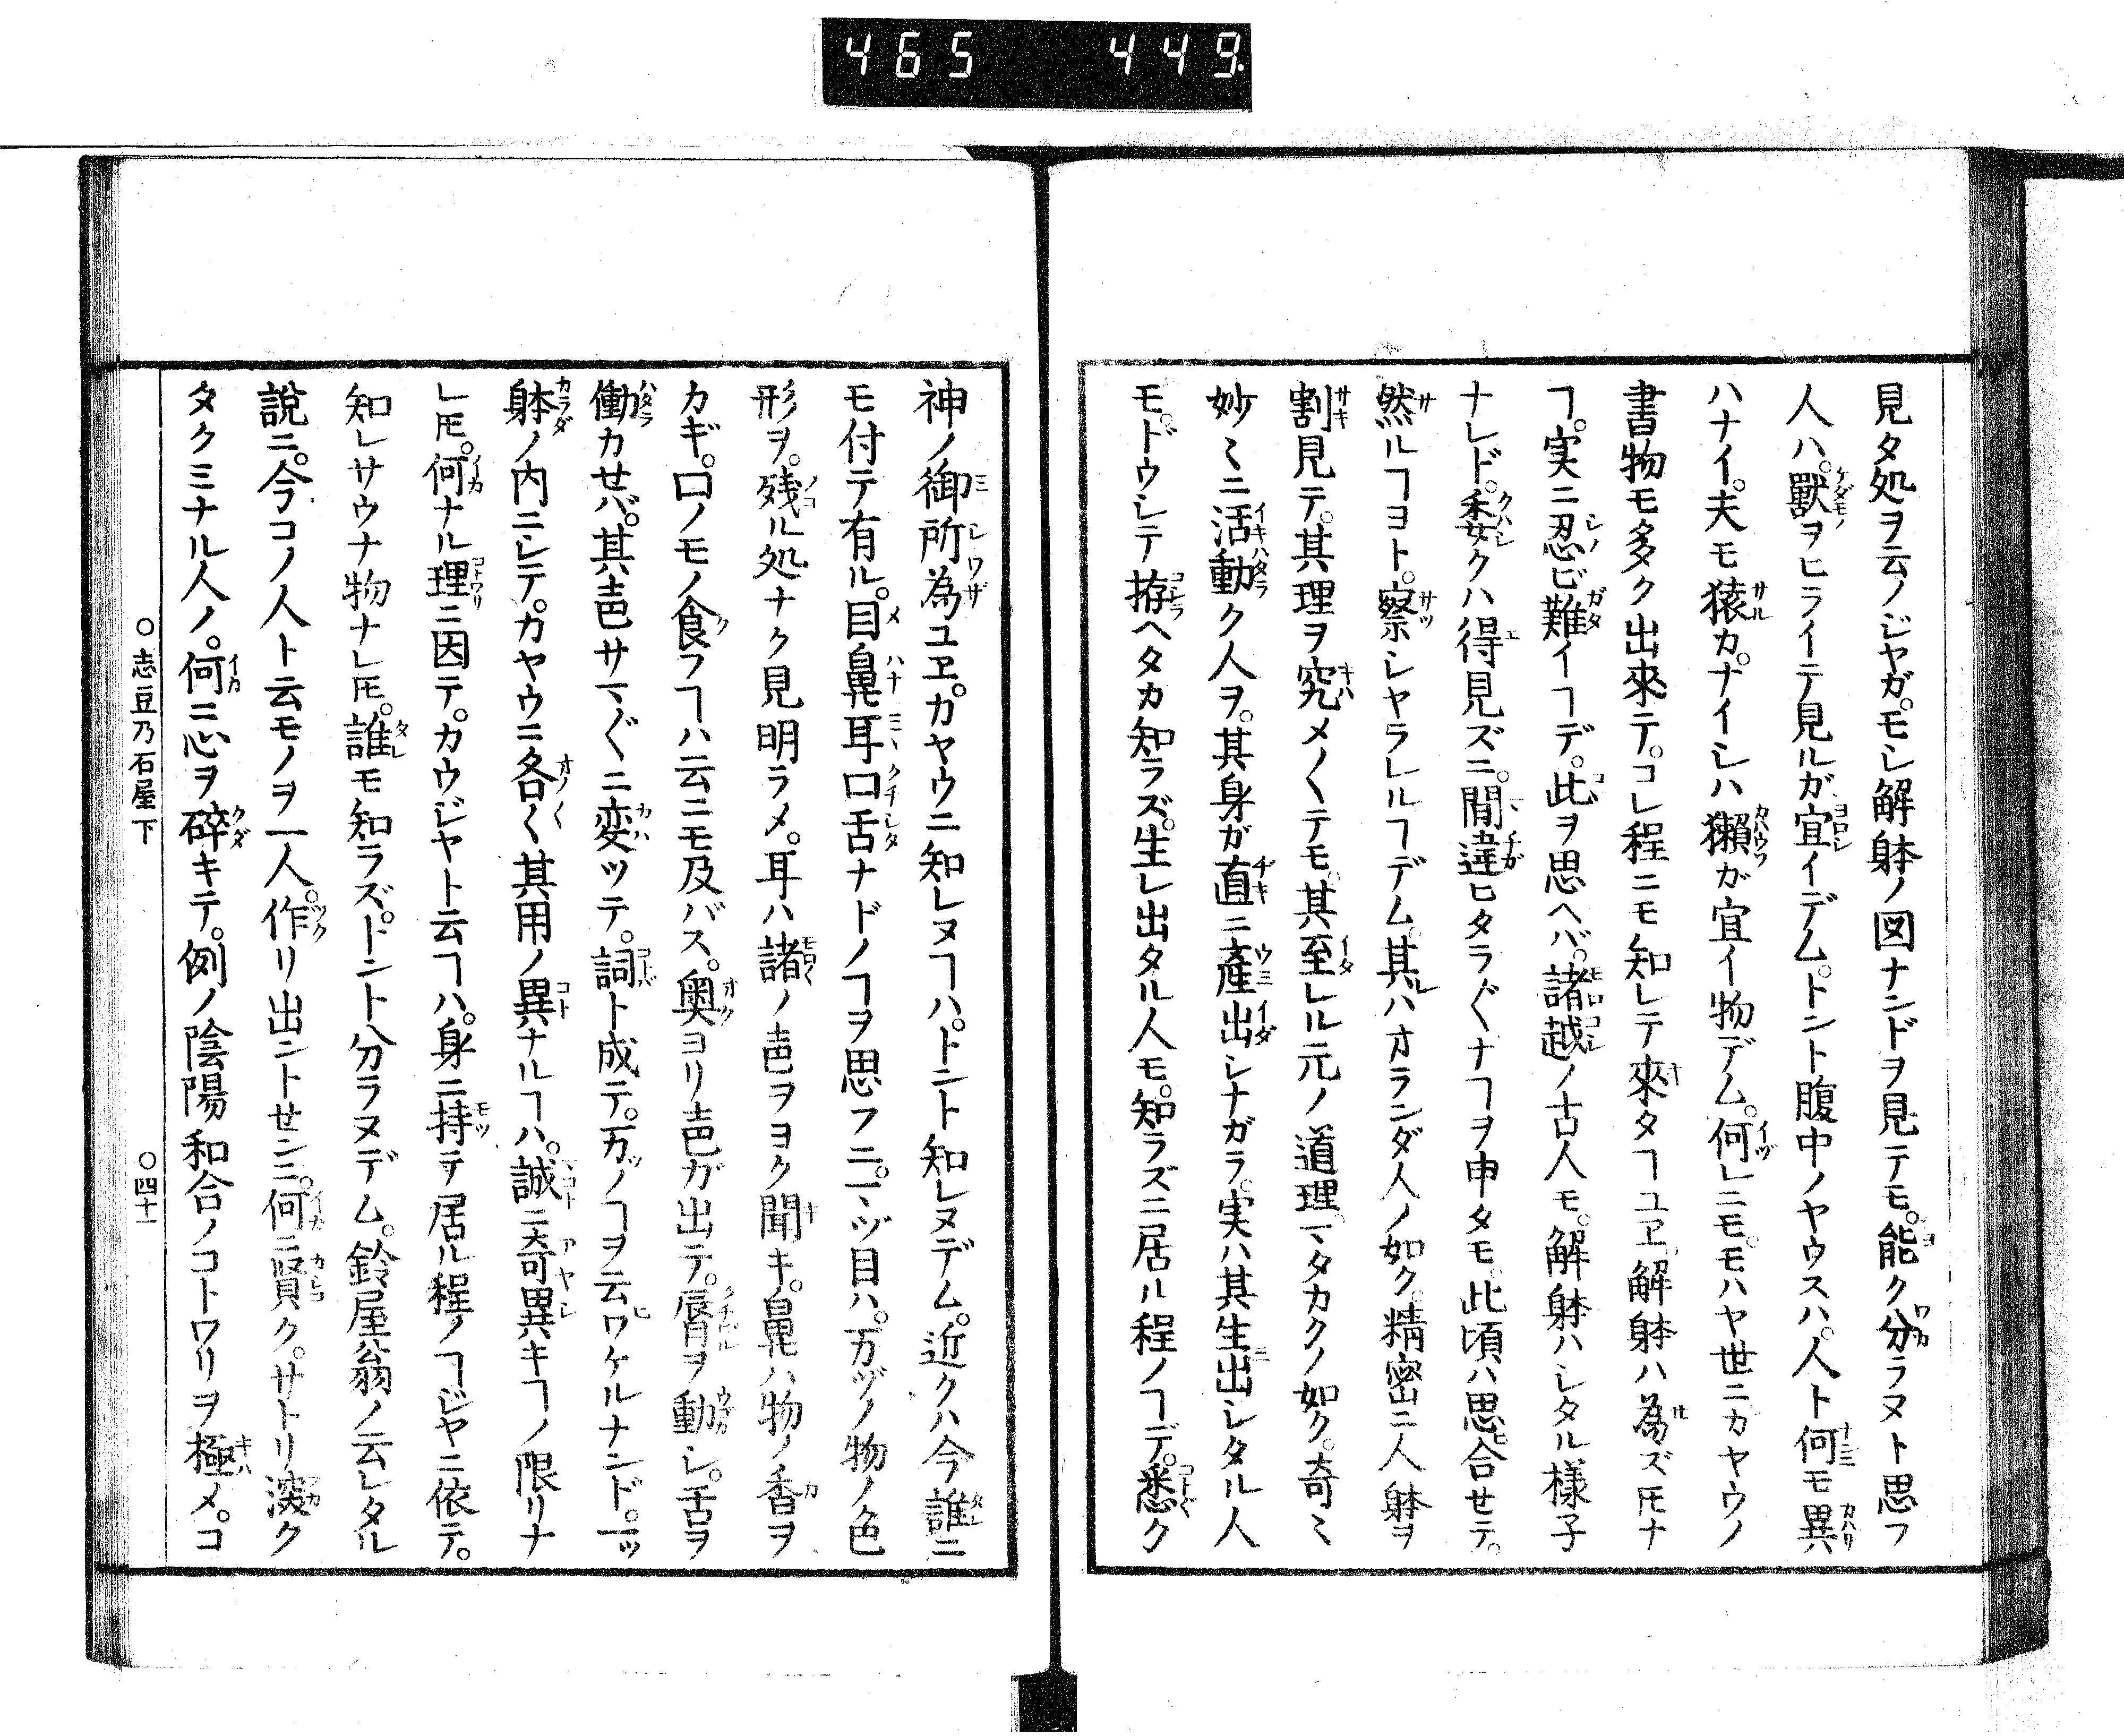 465 449
見タ処ヲ云ノジヤガ。モシ解躰ノ図ナンドヲ見テモ。能ク分ラヌト思フ
人ハ。獸ヲヒライテ見ルガ宜イデム。トント腹中ノヤウスハ。人ト何モ異
ハナイ。夫モ猿カ。ナイシハ獺ガ宜イ物デム。何レニモ。モハヤ世ニカヤウノ
書物モ多ク出來テ。コレ程ニモ知レテ來タヿユヱ。解躰ハ為ズ𪜈ナ
ヿ。実ニ忍ビ難イヿデ。此ヲ思ヘバ。諸越ノ古人モ。解躰ハシタル樣子
ナレド。委クハ得見ズニ。間違ヒタラ〴〵ナヿヲ申タモ。此頃ハ思合セテ。
然ルヿヨト。察シヤラレルヿデム。其ハオランダ人ノ如ク。精密ニ人躰ヲ
割見テ。其理ヲ究メ〳〵テモ。其至レル元ノ道理。マタカクノ如ク。奇ミ
妙〻ニ活動ク人ヲ。其身ガ直ニ產出シナガラ。実ハ其生出シタル人
モ。ドウシテ拵ヘタカ知ラズ。生レ出タル人モ。知ラズニ居ル程ノヿデ。悉ク
神ノ御所為ユヱ。カヤウニ知レヌヿハ。トント知レヌデム。近クハ今誰ニ
モ付テ有ル。目鼻耳口舌ナドノヿヲ思フニ。マヅ目ハ。万ヅノ物ノ色
形ヲ。残ル処ナク見明ラメ。耳ハ諸ノ声ヲヨク聞キ。鼻ハ物ノ香ヲ
カギ。口ノモノ食フヿハ云ニモ及バス。奥ヨリ声ガ出テ。唇ヲ動シ。舌ヲ
働カセバ。其声サマ〴〵ニ変ツテ。詞ト成テ。万ノヿヲ云ワケルナンド。一ッ
躰ノ内ニシテ。カヤウニ各〳〵其用ノ異ナルヿハ。誠ニ奇異キヿノ限リナ
レ𪜈。何ナル理ニ因テ。カウジヤト云ヿハ。身ニ持テ居ル程ノヿジヤニ依テ。
知レサウナ物ナレ𪜈。誰モ知ラズ。トント分ラヌデム。鈴屋翁ノ云レタル
說ニ。今コノ人ト云モノヲ一人。作リ出ントセンニ。何ニ賢ク。サトリ深ク
タクミナル人ノ。何ニ心ヲ碎キテ。例ノ陰陽和合ノコトワリヲ極メ。コ
○志豆乃石屋下 ○四十一